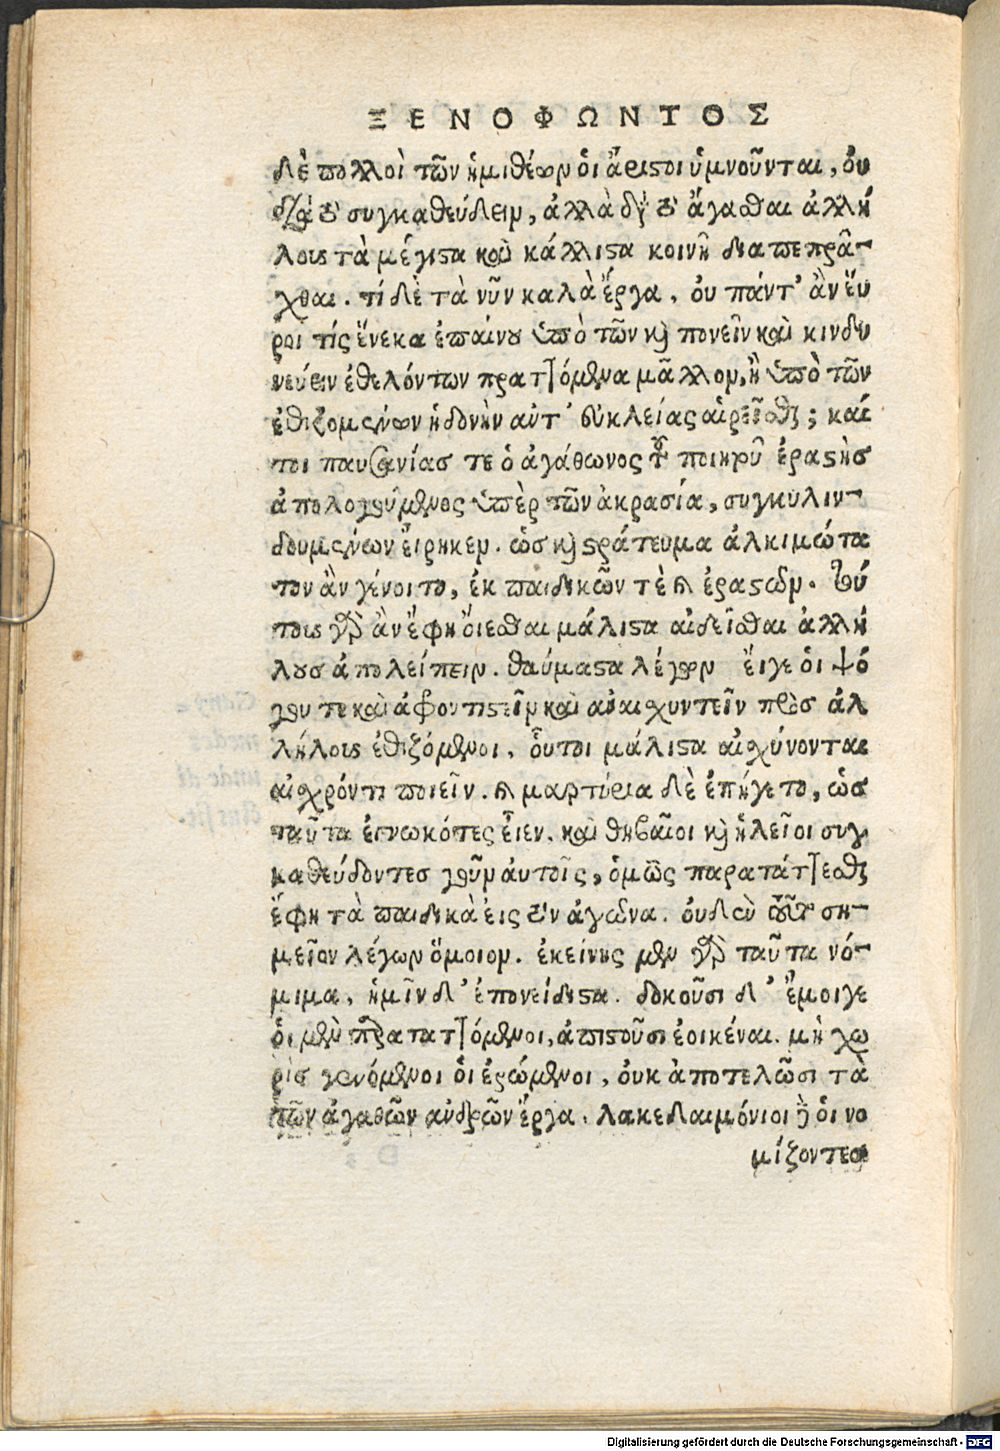 ΞΕΝΟΦΩΝΤΟΣ
δὲ πολλοὶ τῶν ἡμιθέων ὁι ἄριστοι ὑμνοῦνται, ὀυ
διὰ τὸ συγκαθεύδειν, ἀλλὰ διὰ τὸ ἄγασθαι ἀλλή
λους τὰ μέγιστα καὶ κάλλιστα κοινῆ διαπεπρᾶ-
χθαι. τί δὲ τὰ νῦν καλὰ ἔργα, ὀυ πάντ' ἂν ἕυ
ροι τίς ἕνεκα ἐπαίνου ὑπὸ τῶν καὶ πονεῖν καὶ κινδυ
νεύειν ἐθελόντων πρατ]όμενα μᾶλλον, ἢ ὑπὸ τῶν
ἐθιζομένων ἡδονὴν αὐτ' ἐυκλείας αἱρεῖσθαι; καί
τοι παυσανίας τε ὁ ἀγάθωνος τοῦ ποιητοῦ ἐραστὴς
ἀπολογούμενος ὑπὲρ τῶν ἀκρασία, συγκυλιν-
δουμένων ἔιρηκεν. ὡς καὶ στράτευμα ἀλκιμώτα
τον ἂν γένοιτο, ἐκ παιδικῶν τὲ καὶ ἐραστῶν. τού
τους γὰρ ἂν ἔφη ὄιεσθαι μάλιστα αἰδεῖσθαι ἀλλή
λους ἀπολείπειν. θαύμαστα λέγων ἔιγε ὁι ψό
γου τε καὶ ἀφροντιστεῖν καὶ ἀναισχυντεῖν πρὸς ἀλ
λήλους ἐθιζόμενοι, ὅυτοι μάλιστα αἰσχύνονται
αἰσχρόντι ποιεῖν. καὶ μαρτύρια δὲ ἐπήγετο, ὡς
ταῦτα ἐγνωκότες ἔιεν. καὶ θηβαῖοι καὶ ἠλεῖοι συγ
καθεύδοντες γοῦν ἀυτοῖς, ὁμῶς παρατάτ]εσθαι
ἔφη τὰ παιδικὰ ἐις τὸν ἀγῶνα. ὀυδὲν τοῦτο ση-
μεῖον λέγων ὅμοιον. ἐκείνης μὲν γὰρ ταῦτα νό-
μιμα, ἡμῖν δ' ἐπονείδιστα. δοκοῦσι δ' ἔμοιγε
ὁι μὲν παρατατ]όμενοι, ἀπιστοῦσι ἐοικέναι. μὴ χω
ρὶς γενόμενοι ὁι ἐρώμενοι, ὀυκ ἀποτελῶσι τὰ
τῶν ἀγαθῶν ἀνδρῶν ἔργα. λακεδαιμόνιοι δὲ ὁι νο
μίζοντες
Digitalisierung gefördert durch die Deutsche Forschungsgemeinschaft - DFG